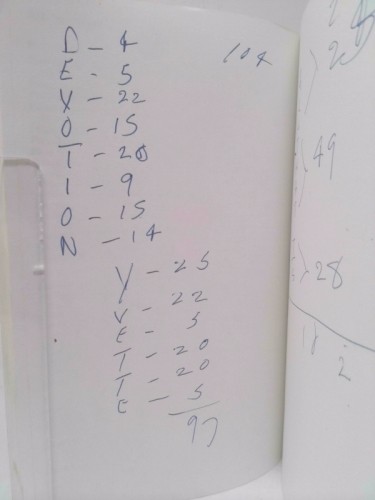 D - 4
104
E - 5
V - 22
O - 15
T - 20
I - 9
O - 15
N - 14
Y - 25
V - 22
E - 5
T - 20
T - 20
E - 5
97
49
28